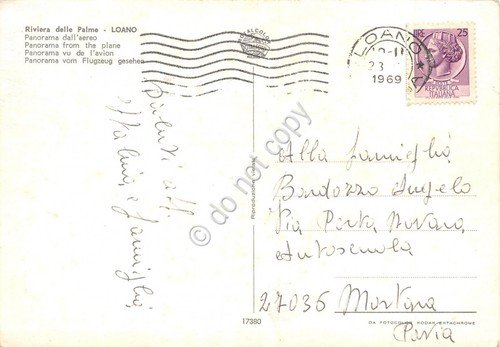 Riviera delle Palme - LOANO
Panorama dall'aereo
Panorama from the plane
Panorama vu de l'avion
Panorama vom Flugzeug gesehen
LOANO
23
1969
LIRE 25
REPUBBLICA
ITALIANA
Saluti
e famiglia
do not copy
Riproduzione
Alla famiglia
Bardozzo Angelo
Via Porta Nuova
Autoscuola
27036 Mortara
(Pavia
17380
DA FOTOCOLOR KODAK EKTACHROME